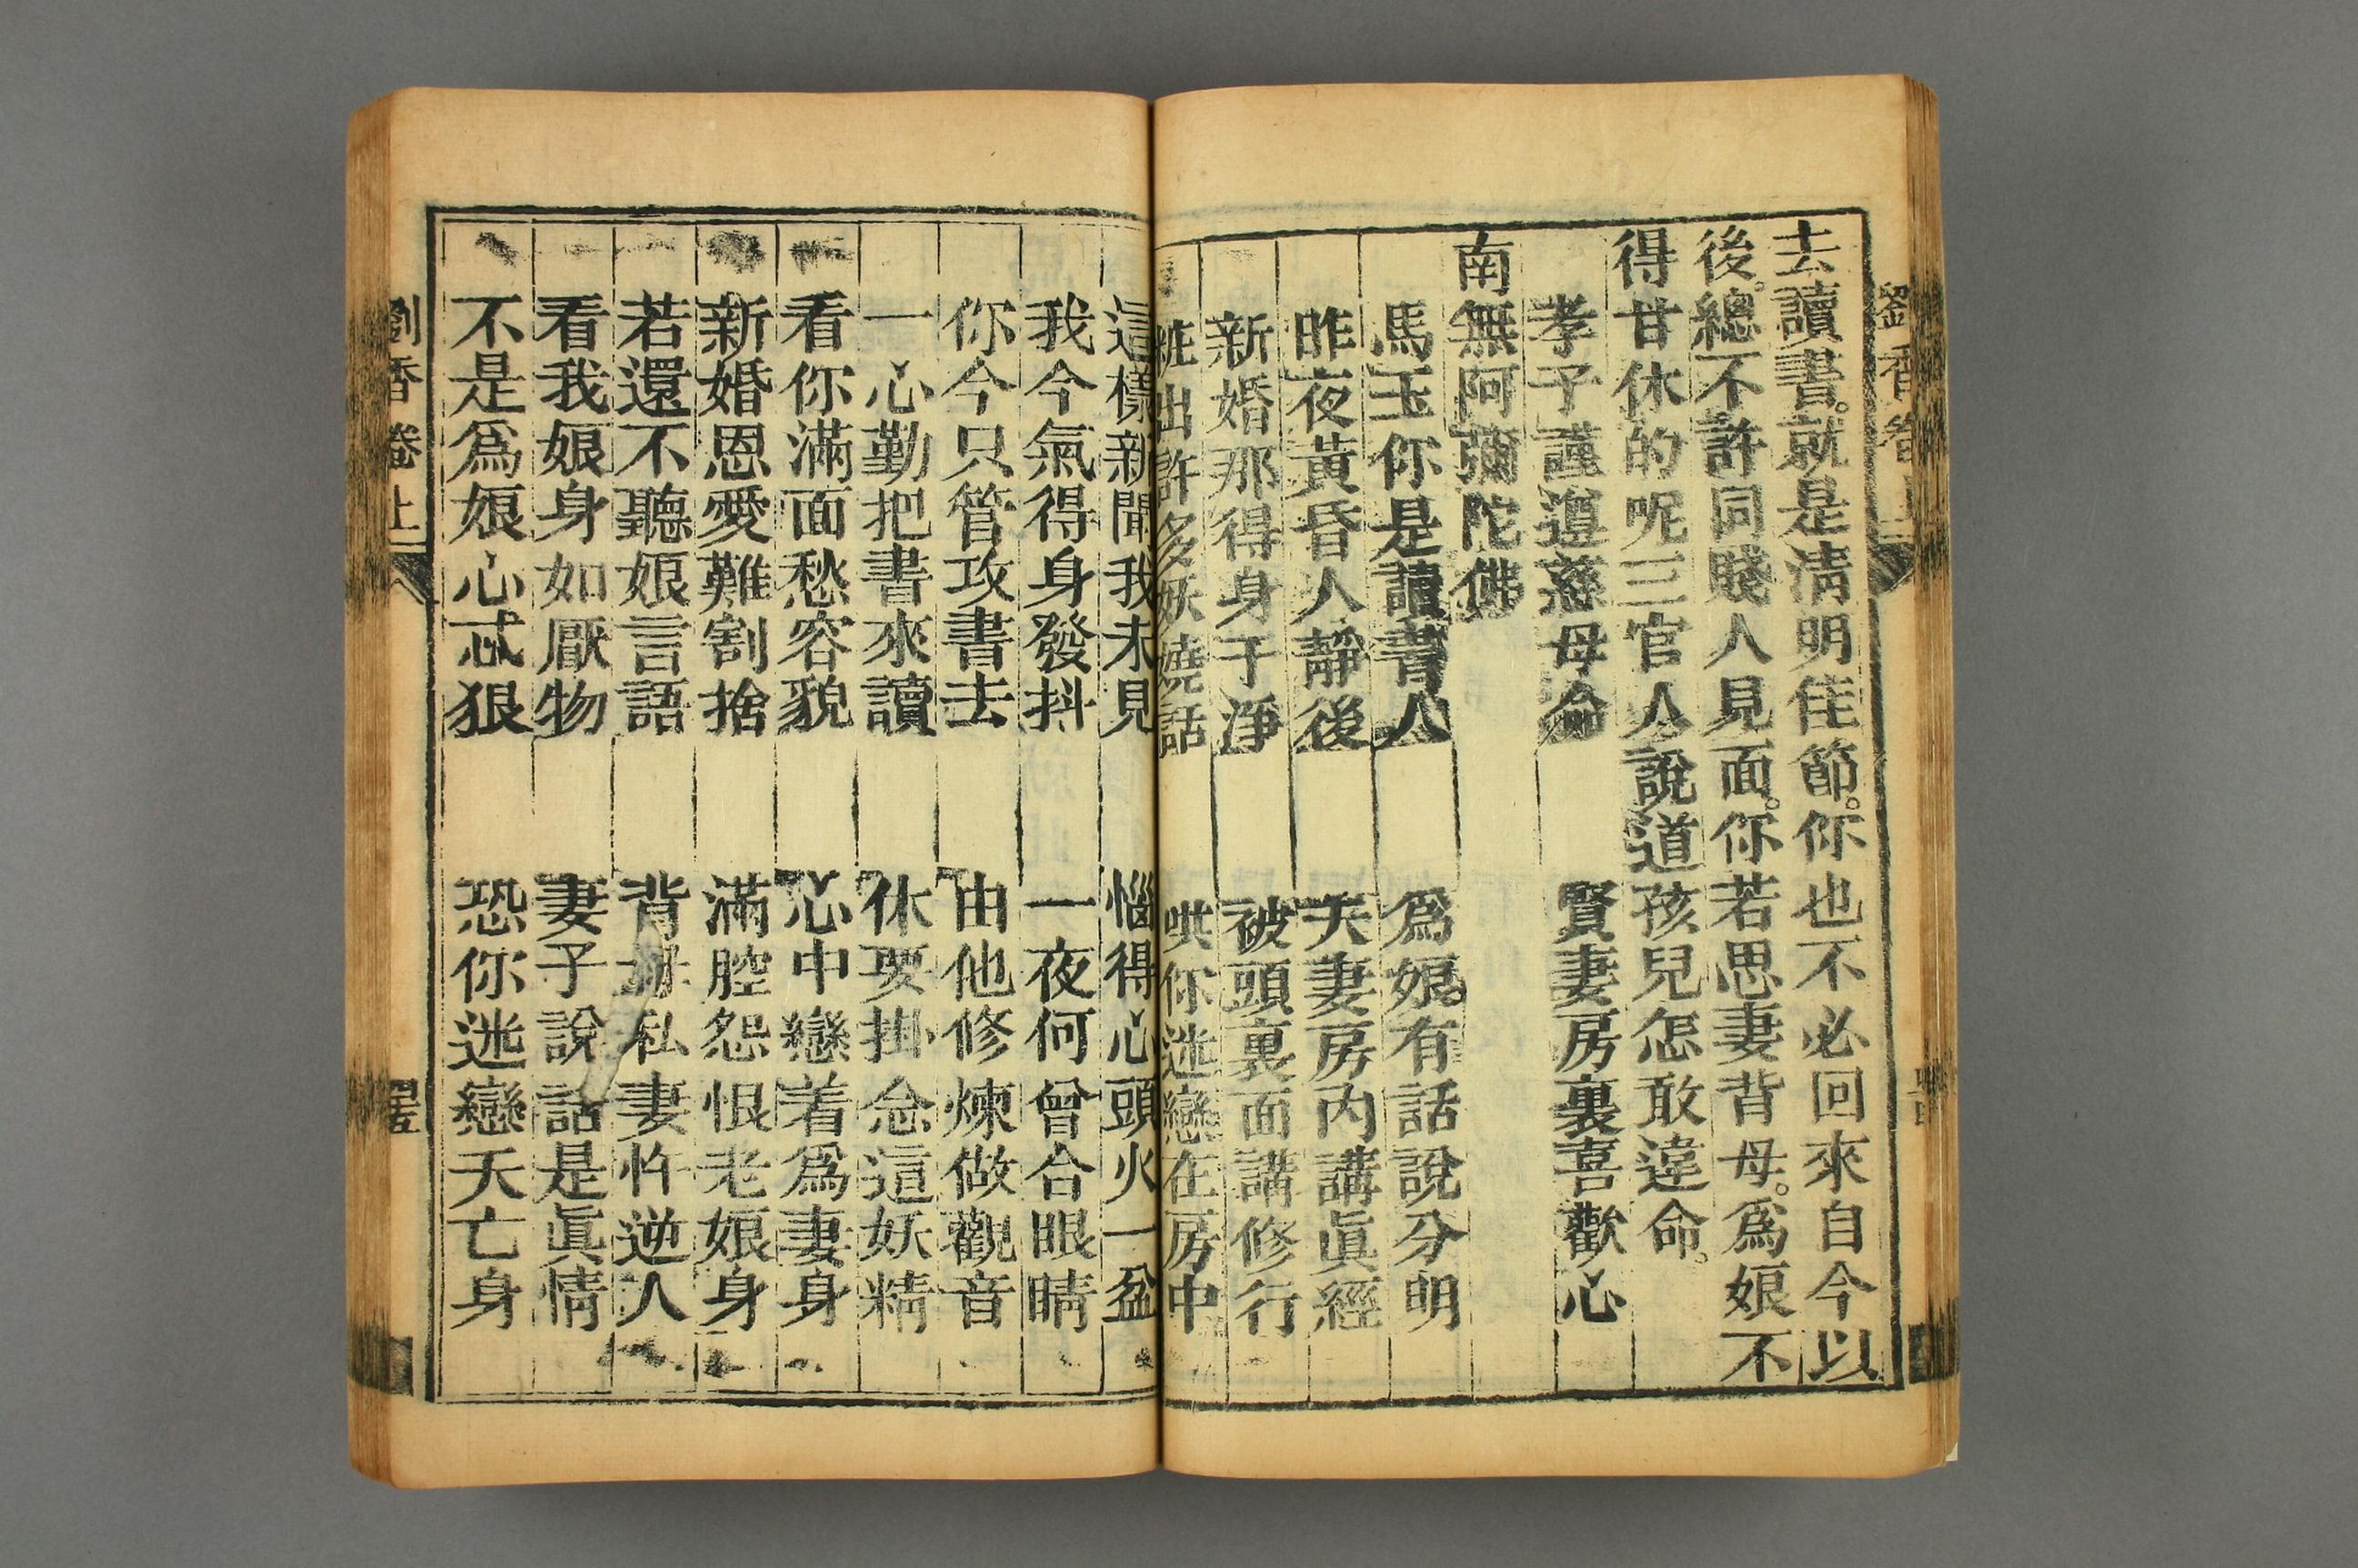 劉香卷上
去讀書。就是淸明佳節。你也不必回來自今以
後。總不許同賤人見面。你若思妻背母。爲娘不
得甘休的呢三官人說道孩兒怎敢違命。
孝子謹遵慈母命　賢妻房裏喜歡心
南無阿彌陀佛
馬玉你是讀書人　爲娘有話說分明
昨夜黃昏人靜後　夫妻房內講眞經
新婚那得身子淨　被頭裏面講修行
粧出許多妖嬈話　哄你迷戀在房中
這樣新聞我未見　惱得心頭火一盆
我今氣得身發抖　一夜何曾合眼睛
你今只管攻書去　由他修煉做觀音
一心勤把書來讀　休要掛念這妖精
看你滿面愁容貌　心中戀着爲妻身
新婚恩愛難割捨　滿腔怨恨老娘身
若還不聽娘言語　背母私妻忤逆人
看我娘身如厭物　妻子說話是眞情
不是爲娘心忒狠　恐你迷戀夭亡身
劉香卷上